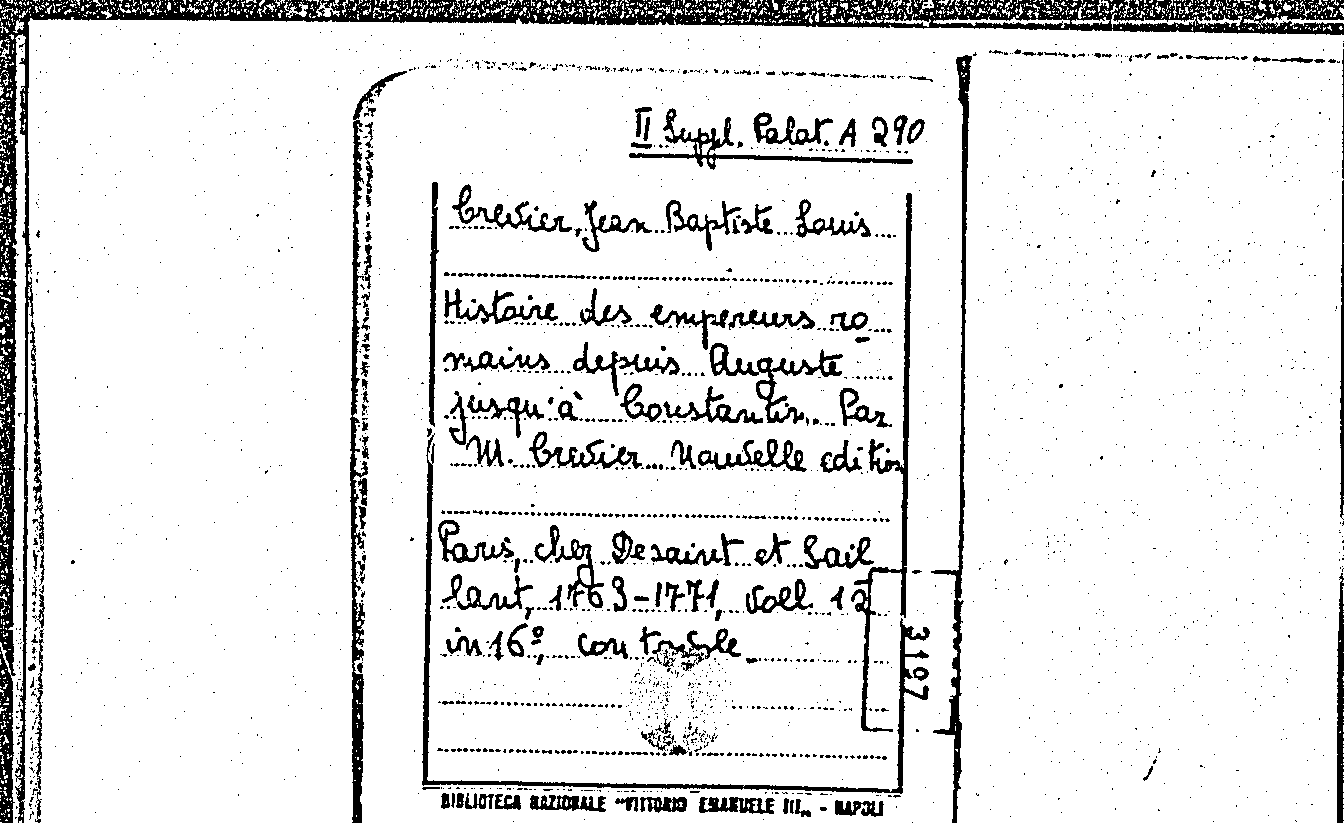 II Suppl. Palat. A 290
Crevier, Jean Baptiste Louis
Histoire des empereurs ro
mains depuis Auguste
jusqu'à Constantin. Par
M. Crevier. Nouvelle edition
Paris, chez Desaint et Sail
lant, 1763-1771, voll. 12
in 16º, con tavole
3197
BIBLIOTECA NAZIONALE "VITTORIO EMANUELE III„ - NAPOLI